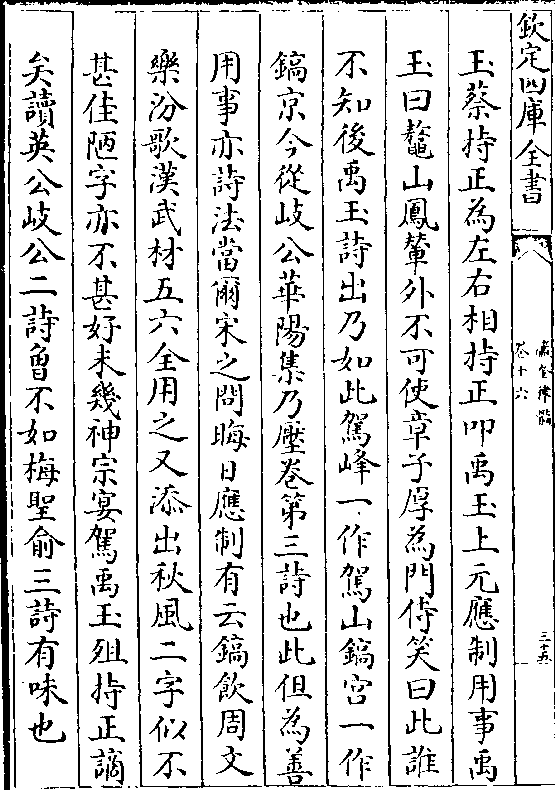 欽定四庫全書
瀛奎律髓
卷十六
三十五
玉蔡持正為左右相持正叩禹玉上元應制用事禹
玉曰鼇山鳳輦外不可使章子厚為門侍笑曰此誰
不知後禹玉詩出乃如此駕峰一作駕山鎬宫一作
鎬京今從岐公華陽集乃壓卷第三詩也此但為善
用事亦詩法當爾宋之問晦日應制有云鎬飲周文
樂汾歌漢武材五六全用之又添出秋風二字似不
甚佳陋字亦不甚好未幾神宗宴駕禹玉殂持正謫
矣讀英公岐公二詩曾不如梅聖俞三詩有味也